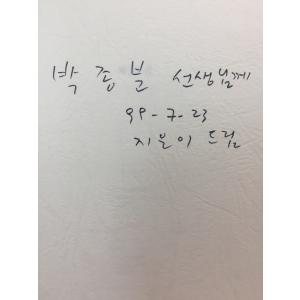 박종불 선생님께
99-7-23
지은이 드림